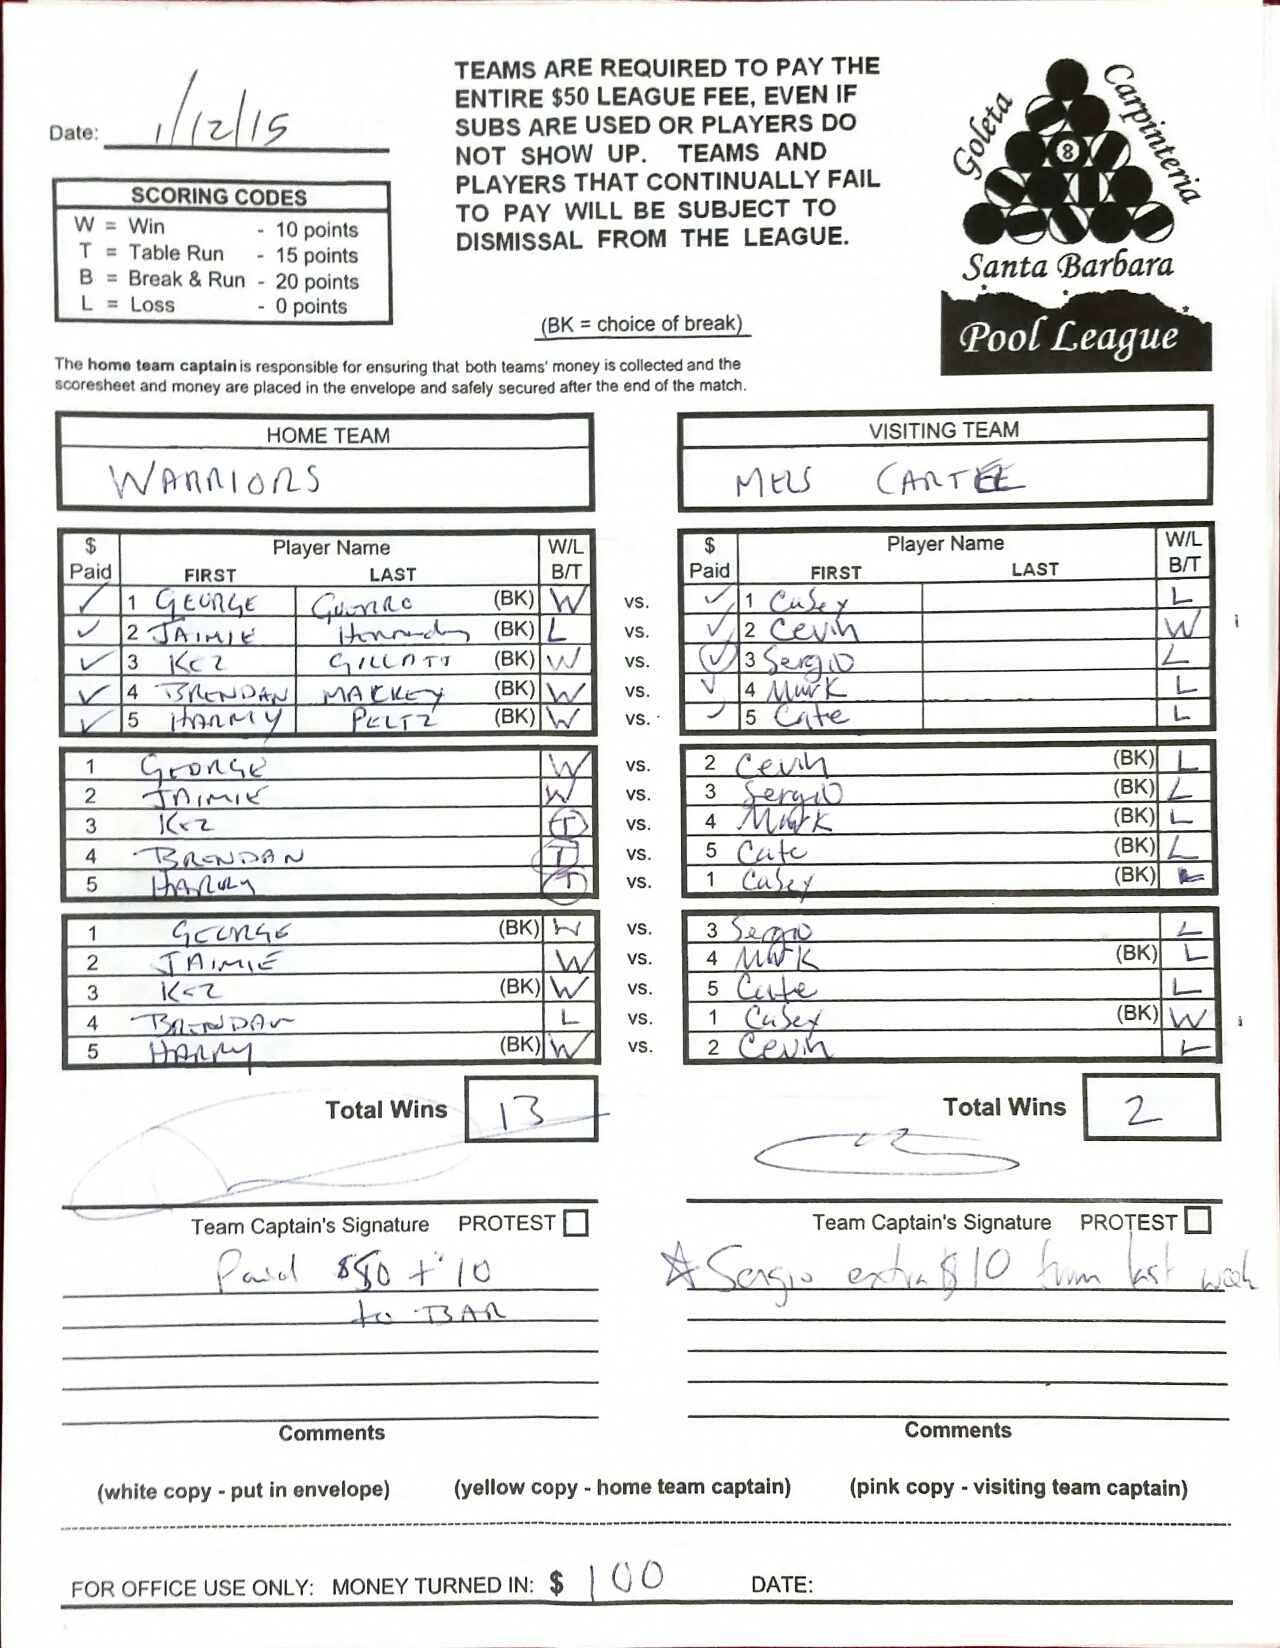 Date: 1/12/15
TEAMS ARE REQUIRED TO PAY THE
ENTIRE $50 LEAGUE FEE, EVEN IF
SUBS ARE USED OR PLAYERS DO
NOT SHOW UP. TEAMS AND
PLAYERS THAT CONTINUALLY FAIL
TO PAY WILL BE SUBJECT TO
DISMISSAL FROM THE LEAGUE.
Goleta Carpinteria
8
Santa Barbara
Pool League
SCORING CODES
W = Win - 10 points
T = Table Run - 15 points
B = Break & Run - 20 points
L = Loss - 0 points
(BK = choice of break)
The home team captain is responsible for ensuring that both teams' money is collected and the
scoresheet and money are placed in the envelope and safely secured after the end of the match.
HOME TEAM VISITING TEAM
WARRIORS MELS CARTEE
$ Player Name W/L $ Player Name W/L
Paid FIRST LAST B/T Paid FIRST LAST B/T
1 GEORGE (BK) W vs. 1 Casey L
2 JAIMIE (BK) L vs. 2 Cevin W
3 KEZ (BK) W vs. 3 Sergio L
4 BRENDAN MACKEY (BK) W vs. 4 Mark L
5 HARRY PELTZ (BK) W vs. 5 Cate L
1 GEORGE W vs. 2 Cevin (BK) L
2 JAIMIE W vs. 3 Sergio (BK) L
3 KEZ T vs. 4 Mark (BK) L
4 BRENDAN T vs. 5 Cate (BK) L
5 HARRY T vs. 1 Casey (BK) L
1 GEORGE (BK) W vs. 3 Sergio L
2 JAIMIE W vs. 4 Mark (BK) L
3 KEZ (BK) W vs. 5 Cate L
4 BRENDAN L vs. 1 Casey (BK) W
5 HARRY (BK) W vs. 2 Cevin L
Total Wins 13 Total Wins 2
Team Captain's Signature PROTEST Team Captain's Signature PROTEST
Paid $50 + 10 Sergio extra $10 from last week
to BAR
Comments Comments
(white copy - put in envelope) (yellow copy - home team captain) (pink copy - visiting team captain)
FOR OFFICE USE ONLY: MONEY TURNED IN: $ 100 DATE: